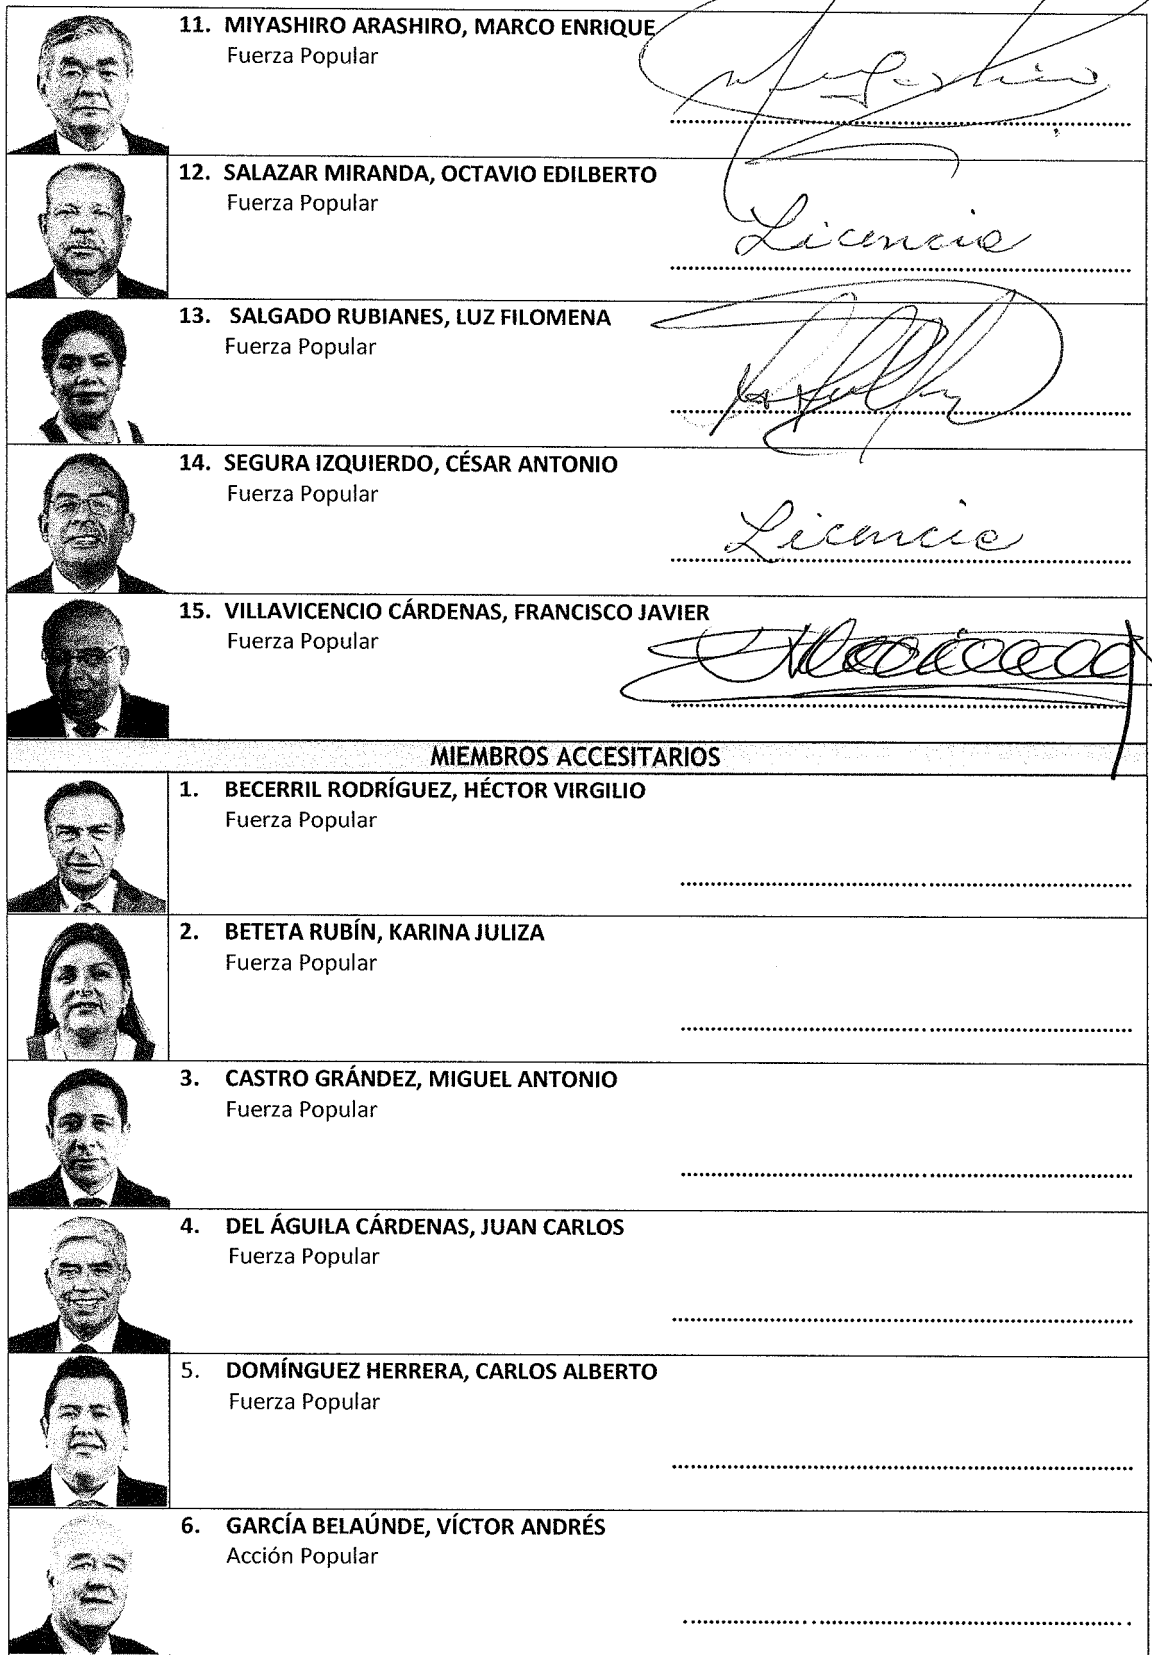 11. MIYASHIRO ARASHIRO, MARCO ENRIQUE
Fuerza Popular
12. SALAZAR MIRANDA, OCTAVIO EDILBERTO
Fuerza Popular
Licencia
13. SALGADO RUBIANES, LUZ FILOMENA
Fuerza Popular
14. SEGURA IZQUIERDO, CÉSAR ANTONIO
Fuerza Popular
Licencia
15. VILLAVICENCIO CÁRDENAS, FRANCISCO JAVIER
Fuerza Popular
MIEMBROS ACCESITARIOS
1. BECERRIL RODRÍGUEZ, HÉCTOR VIRGILIO
Fuerza Popular
2. BETETA RUBÍN, KARINA JULIZA
Fuerza Popular
3. CASTRO GRÁNDEZ, MIGUEL ANTONIO
Fuerza Popular
4. DEL ÁGUILA CÁRDENAS, JUAN CARLOS
Fuerza Popular
5. DOMÍNGUEZ HERRERA, CARLOS ALBERTO
Fuerza Popular
6. GARCÍA BELAÚNDE, VÍCTOR ANDRÉS
Acción Popular